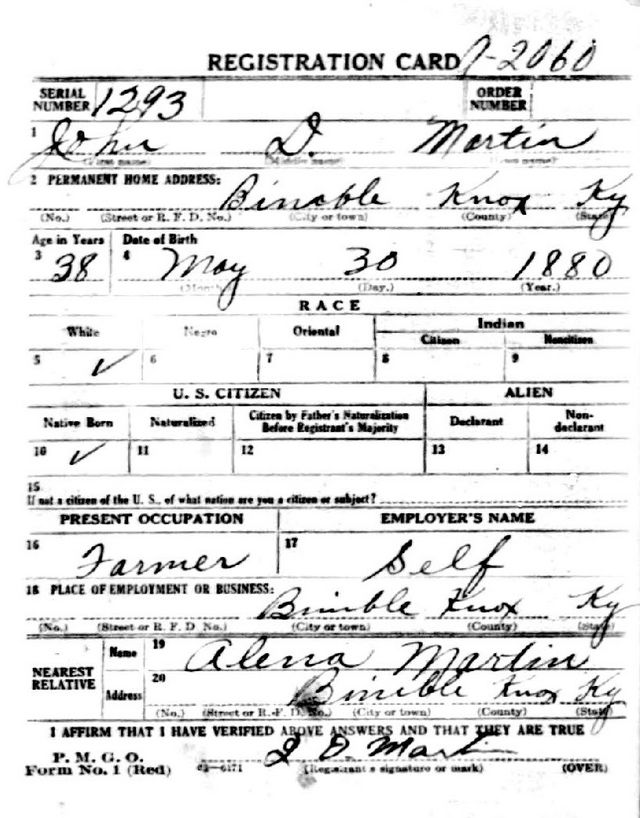 REGISTRATION CARD
SERIAL NUMBER 1293 ORDER NUMBER
1 John D. Martin
(First name) (Middle name)
2 PERMANENT HOME ADDRESS: Bimble Knox Ky
(No.) (Street or R. F. D. No.) (City or town) (County) (State)
Age in Years Date of Birth
3 38 4 May 30 1880
(Month) (Day.) (Year.)
RACE
White Negro Oriental Indian
Citizen Noncitizen
5 ✓ 6 7 8 9
U. S. CITIZEN ALIEN
Native Born Naturalized Citizen by Father's Naturalization Before Registrant's Majority Declarant Non-declarant
10 ✓ 11 12 13 14
15
If not a citizen of the U. S., of what nation are you a citizen or subject?
PRESENT OCCUPATION EMPLOYER'S NAME
16 Farmer 17 Self
18 PLACE OF EMPLOYMENT OR BUSINESS: Bimble Knox Ky
(No.) (Street or R. F. D. No.) (City or town) (County) (State)
NEAREST RELATIVE Name 19 Alena Martin
Address 20 Bimble Knox Ky
(No.) (Street or R. F. D. No.) (City or town) (County) (State)
I AFFIRM THAT I HAVE VERIFIED ABOVE ANSWERS AND THAT THEY ARE TRUE
P. M. G. O.
Form No. 1 (Red) J D. Martin
(Registrant's signature or mark) (OVER)